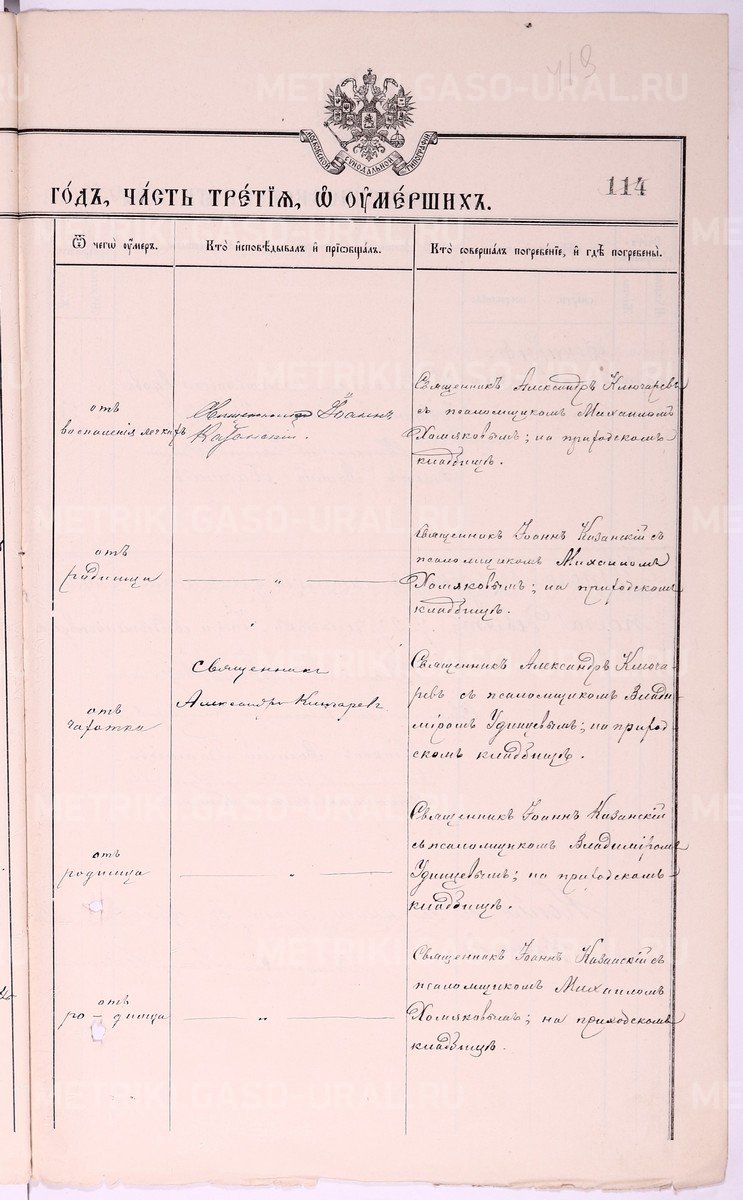 119
МОСКОВСКОЙ СѴНОДАЛЬНОЙ ТИПОГРАФІИ
ГО́ДЪ, ЧА́СТЬ ТРЕ́ТІѦ, Ѽ ОУМЕ́РШИХЪ.
114
Ѿ чегѡ̀ оу҆́меръ.
Кто̀ и҆сповѣ́дывалъ и҆ прїѡбща́лъ.
Кто̀ соверша́лъ погребе́нїе, и҆ гдѣ̀ погребены̀.
отъ
воспаленія
Священникъ Іоаннъ
Казанскій.
Священникъ Александръ Ключаревъ
съ псаломщикомъ Михаиломъ
Хомяковымъ; на приходскомъ
кладбищѣ.
отъ
родимца
— „ —
Священникъ Іоаннъ Казанскій съ
псаломщикомъ Михаиломъ
Хомяковымъ; на приходскомъ
кладбищѣ.
отъ
чахотки
Священникъ
Александръ Ключарев
Священникъ Александръ Ключа-
ревъ съ псаломщикомъ Влади-
міромъ Удинцевымъ; на приход-
скомъ кладбищѣ.
отъ
родимца
— „ —
Священникъ Іоаннъ Казанскій
съ псаломщикомъ Владиміромъ
Удинцевымъ; на приходскомъ
кладбищѣ.
отъ
ро-димца
— „ —
Священникъ Іоаннъ Казанскій съ
псаломщикомъ Михаиломъ
Хомяковымъ; на приходскомъ
кладбищѣ.
METRIKI-GASO-URAL.RU